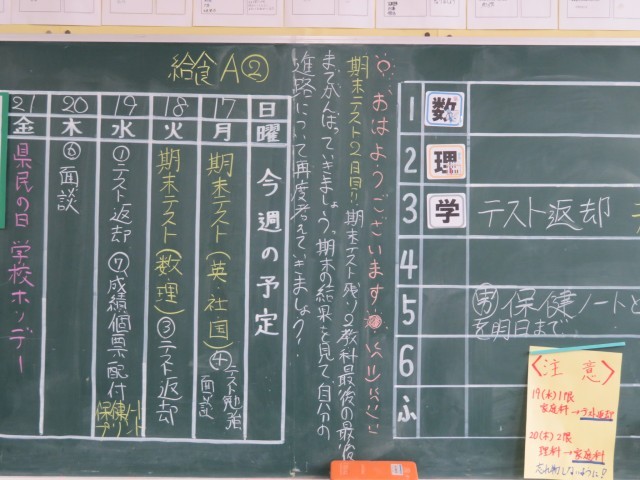 給食A②
日曜
今週の予定
17月
期末テスト(英・社・国)
④テスト勉強
面談
18火
期末テスト(数理)③テスト返却
19水
①テスト返却⑦成績個票配付
保健ノート
プリント
20木
⑥面談
21金
県民の日 学校ホリデー
おはようございます!
期末テスト2日目!!期末テスト残り2教科最後の最後
までがんばっていきましょう。期末の結果を見て、自分の
進路について再度考えていきましょう!
1 数
2 理
3 学 テスト返却
4
5 保健ノートと
を明日まで
6
ふ
〈注意〉
19(水)1限
家庭科→テスト返却
20(木)2限
理科→家庭科
忘れ物しないように!